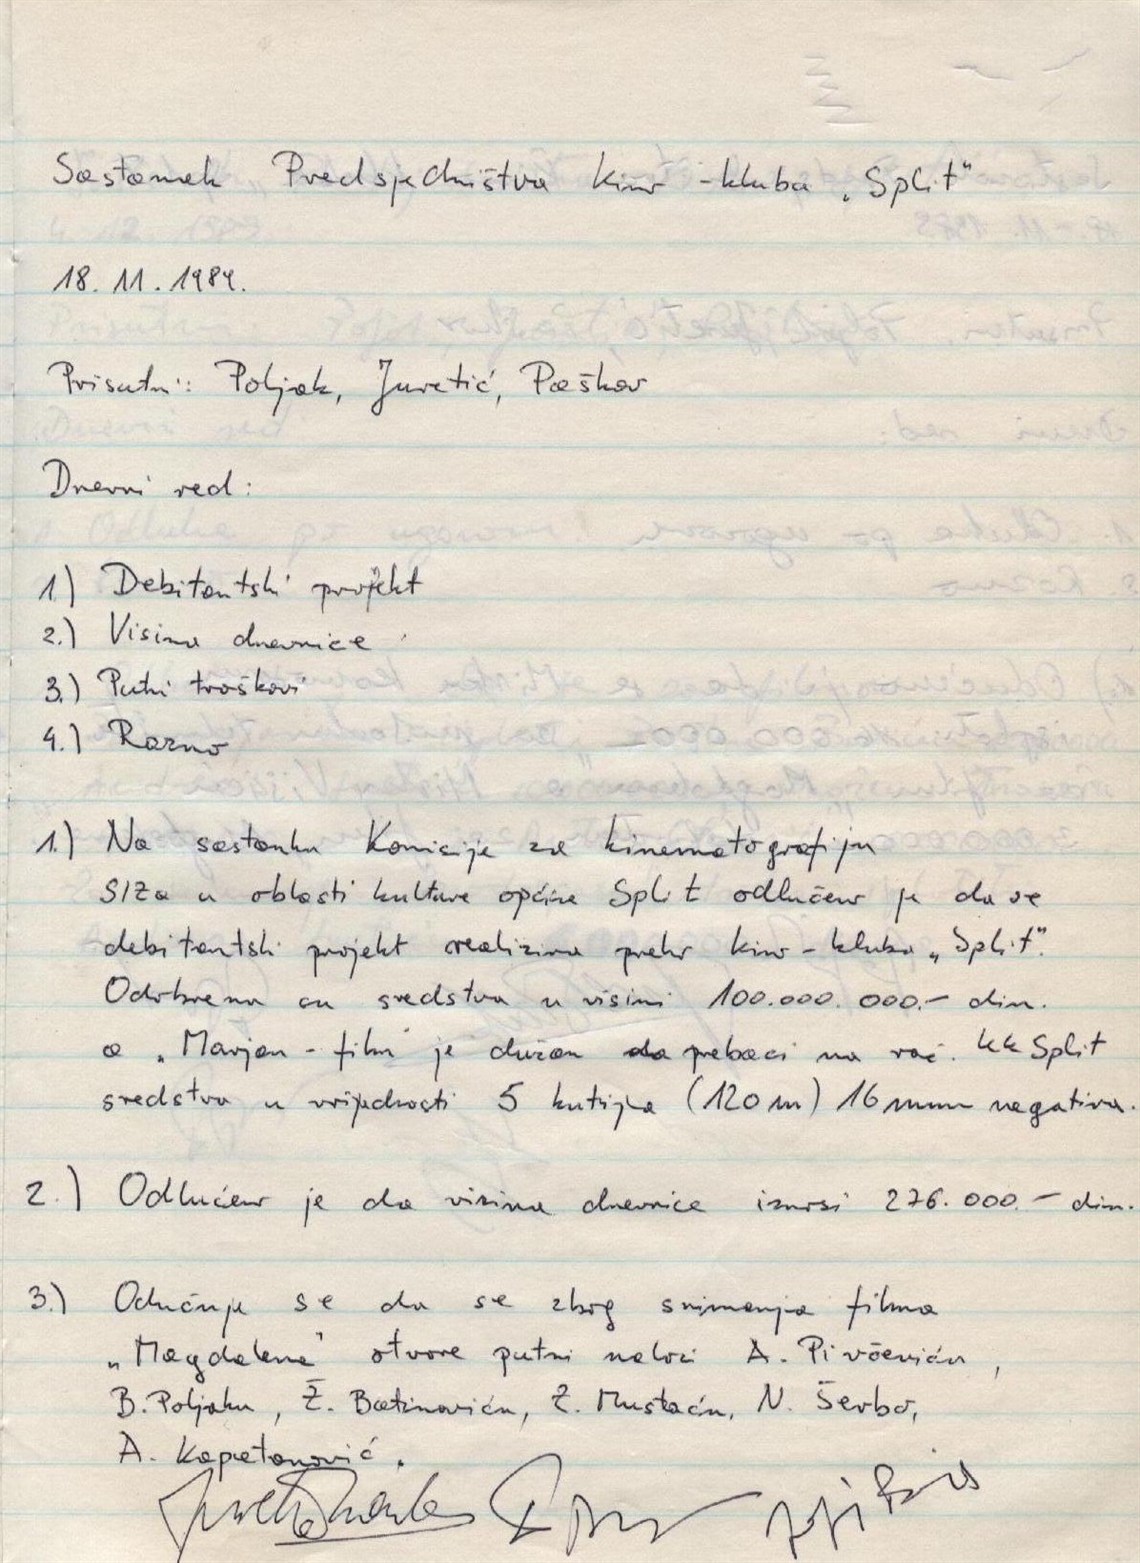 Sastanak Predsjedništva kino-kluba „Split"
18. 11. 1989.
Prisutni: Poljak, Juretić, Paškov
Dnevni red:
1.) Debitantski projekt
2.) Visina dnevnice
3.) Putni troškovi
4.) Razno
1.) Na sastanku Komisije za kinematografiju
SIZa u oblasti kulture općine Split odlučeno je da se
debitantski projekt realizira preko kino-kluba „Split".
Odobrena su sredstva u visini 100.000.000.- din.
a „Marjan-film" je dužan da prebaci na rač. KK Split
sredstva u vrijednosti 5 kutija (120 m) 16 mm negativa.
2.) Odlučeno je da visina dnevnice iznosi 276.000.- din.
3.) Odlučuje se da se zbog snimanja filma
„Magdalena" otvore putni nalozi A. Pivčeviću,
B. Poljaku, Ž. Batinoviću, Z. Mustaću, N. Šerbo,
A. Kapetanović.